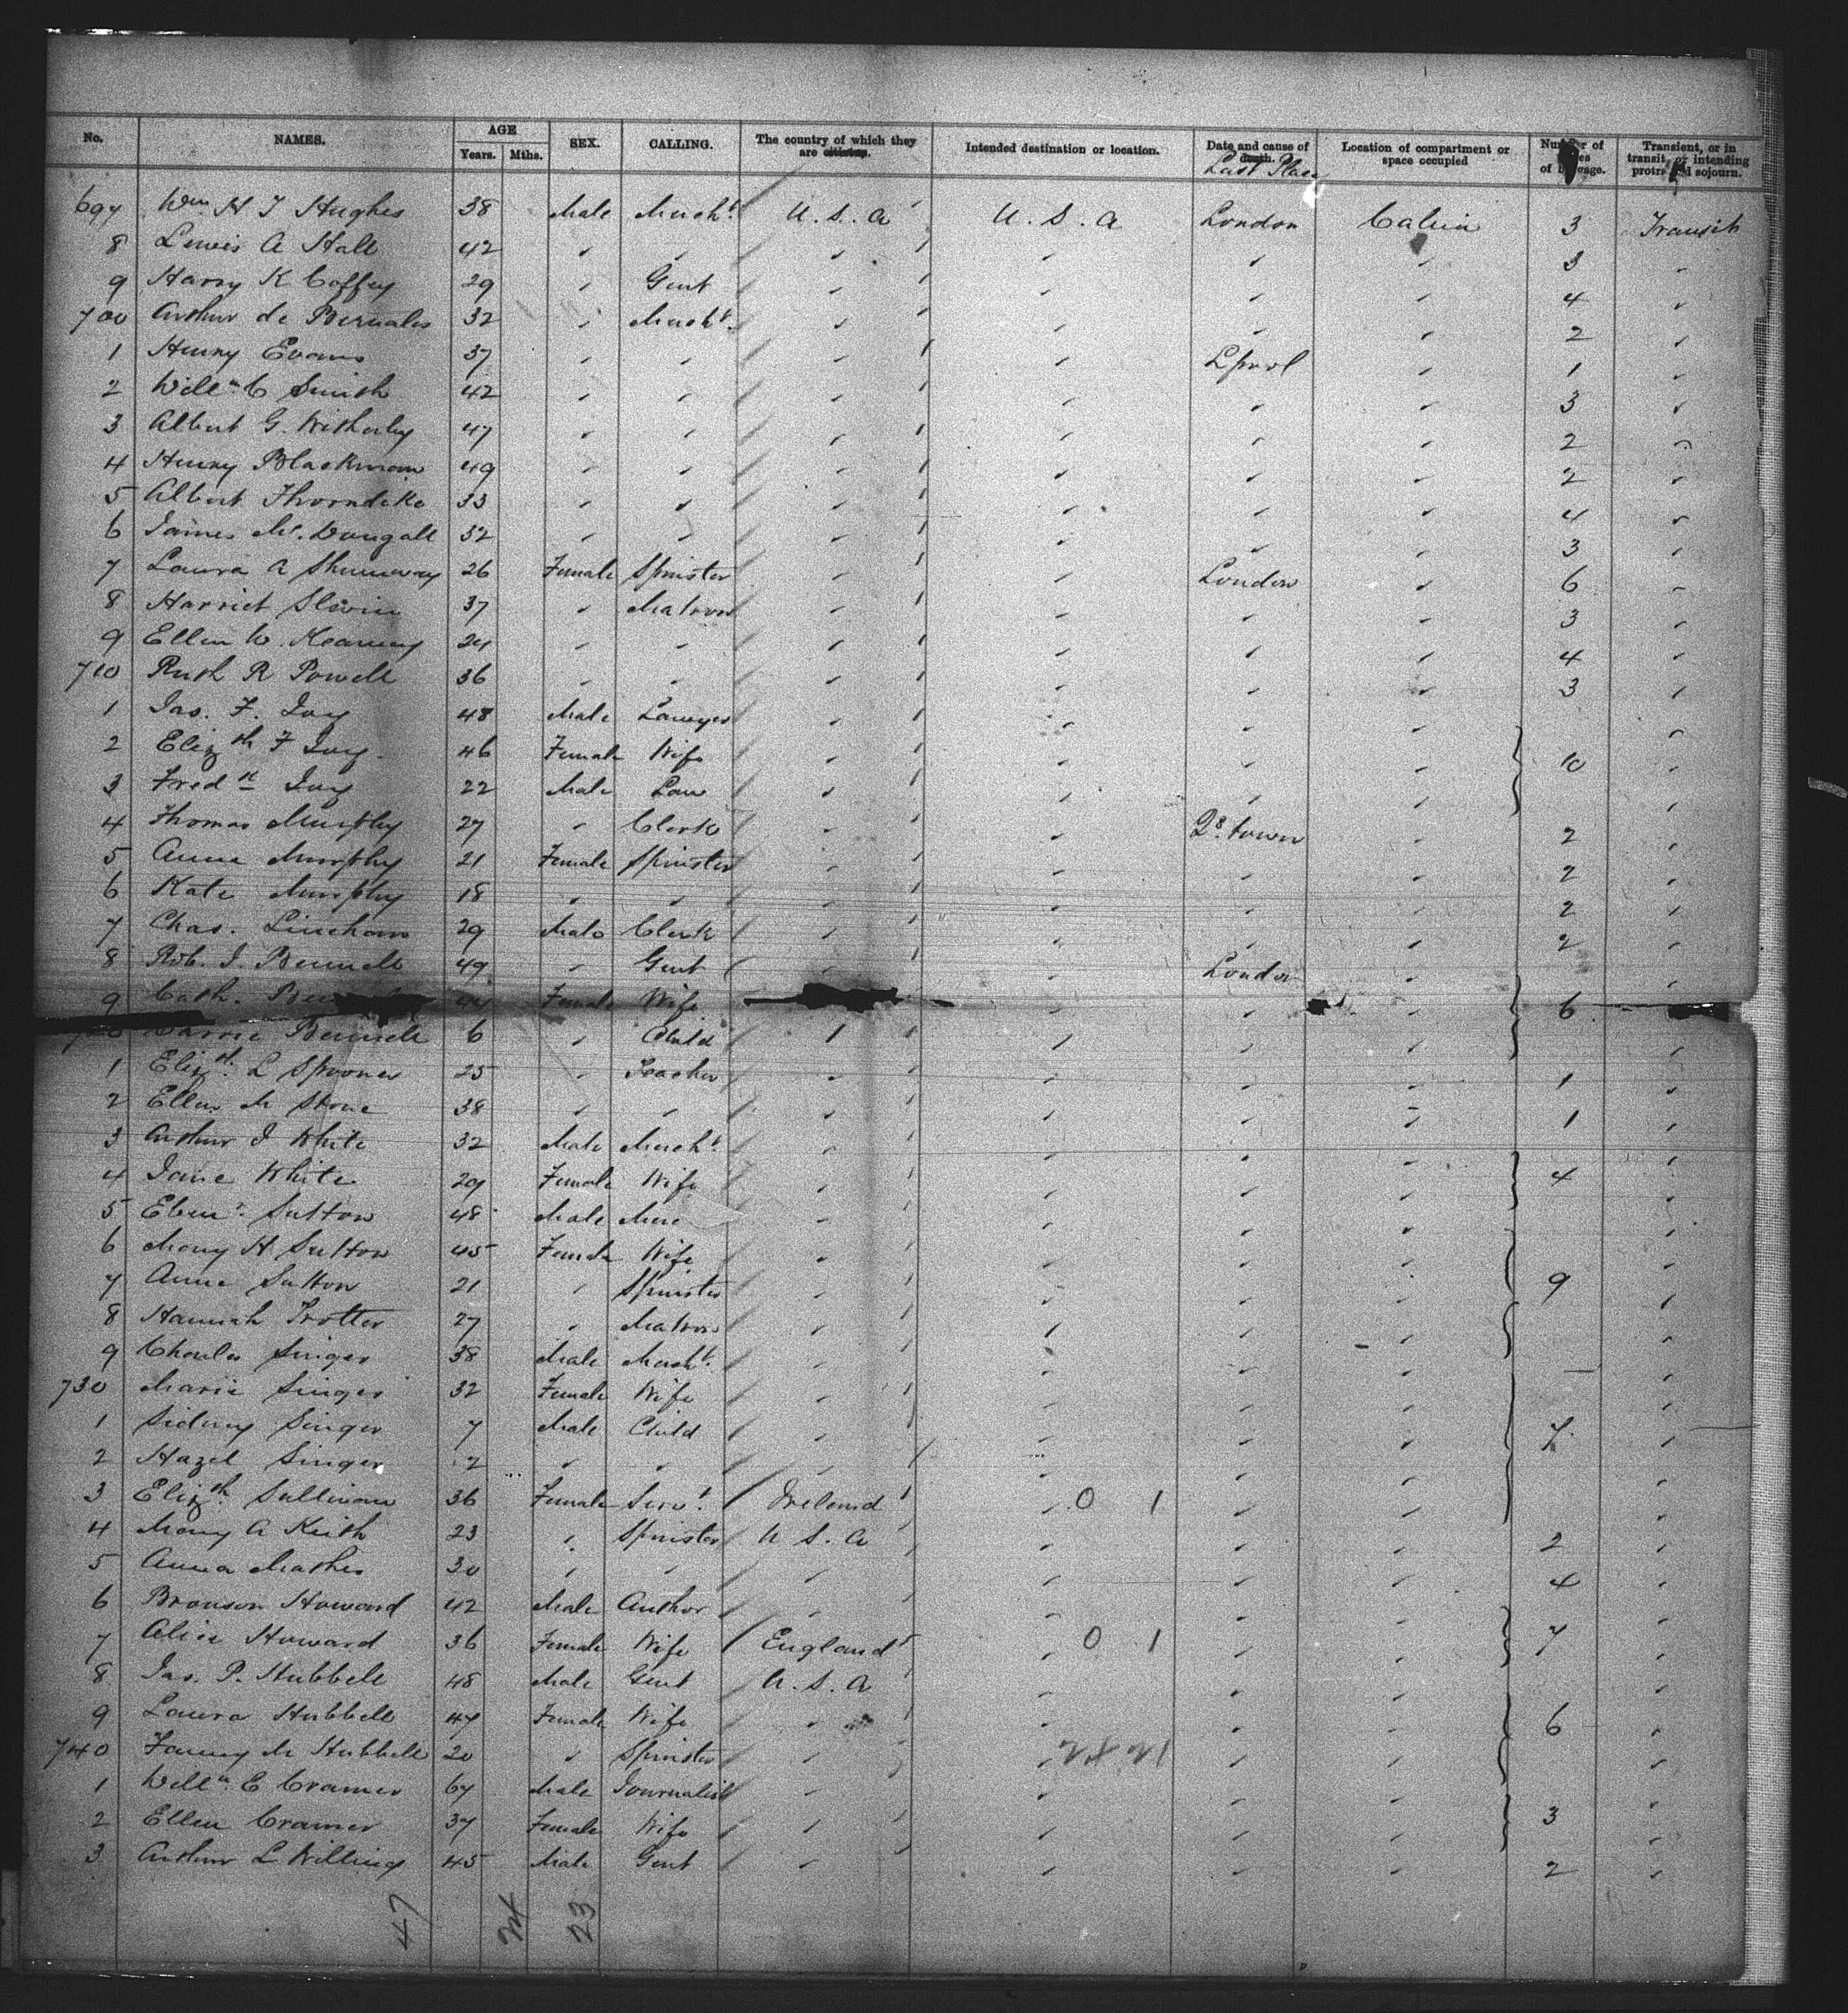 No. NAMES. AGE Years. Mths. SEX. CALLING. The country of which they are citizens. Intended destination or location. Date and cause of death. Last Place Location of compartment or space occupied Number of pieces of baggage. Transient, or in transit, or intending protracted sojourn.
697 Wm H J Hughes 38 Male Mercht U.S.A U.S.A London Cabin 3 Transit
8 Lewis A Hall 42 〃 〃 〃 〃 〃 〃 3 〃
9 Harry K Coffey 29 〃 Gent 〃 〃 〃 〃 4 〃
700 Arthur de Bernales 32 〃 Mercht. 〃 〃 〃 〃 2 〃
1 Henry Evans 37 〃 〃 〃 〃 Lpool 〃 1 〃
2 Willm C Smith 42 〃 〃 〃 〃 〃 〃 3 〃
3 Albert G. Witherby 47 〃 〃 〃 〃 〃 〃 2 〃
4 Henry Blackman 49 〃 〃 〃 〃 〃 〃 2 〃
5 Albert Thorndike 33 〃 〃 〃 〃 〃 〃 4 〃
6 James Mc. Dougall 32 〃 〃 〃 〃 〃 〃 3 〃
7 Laura A Shumway 26 Female Spinster 〃 〃 London 〃 6 〃
8 Harriet Slavin 37 〃 Matron 〃 〃 〃 〃 3 〃
9 Ellen W. Kearney 24 〃 〃 〃 〃 〃 〃 4 〃
710 Ruth R Powell 36 〃 〃 〃 〃 〃 〃 3 〃
1 Jas. F. Joy 48 Male Lawyer 〃 〃 〃 〃 〃
2 Elizth F Joy 46 Female Wife 〃 〃 〃 〃 10 〃
3 Fredk Joy 22 Male Law 〃 〃 〃 〃 〃
4 Thomas Murphy 27 〃 Clerk 〃 〃 Qs. town 〃 2 〃
5 Anna Murphy 21 Female Spinster 〃 〃 〃 〃 2 〃
6 Kate Murphy 18 〃 〃 〃 〃 〃 〃 2 〃
7 Chas. Lincham 29 Male Clerk 〃 〃 〃 〃 2 〃
8 Rob. J. Bennell 49 〃 Gent 〃 〃 London 〃 〃
9 Cath. Female Wife 〃 〃 〃 6
Carrie Bennell 6 〃 Child 〃 〃 〃 〃 〃
1 Elizth. L Spooner 25 〃 Teacher 〃 〃 〃 〃 1 〃
2 Ellen M Stone 38 〃 〃 〃 〃 〃 〃 1 〃
3 Arthur J White 32 Male Mercht. 〃 〃 〃 〃 〃
4 Jane White 29 Female Wife 〃 〃 〃 〃 4 〃
5 Ebenr. Sutton 48 Male Merc 〃 〃 〃 〃 〃
6 Mary H Sutton 45 Female Wife 〃 〃 〃 〃 〃
7 Anne Sutton 21 〃 Spinster 〃 〃 〃 〃 9 〃
8 Hannah Trotter 27 〃 Matron 〃 〃 〃 〃 〃
9 Charles Singer 38 Male Mercht. 〃 〃 〃 〃 〃
730 Marie Singer 32 Female Wife 〃 〃 〃 〃 〃
1 Sidney Singer 7 Male Child 〃 〃 〃 〃 7 〃
2 Hazel Singer 2 〃 〃 〃 〃 〃 〃 〃
3 Elizth. Sullivan 36 Female Servt. Ireland 〃 0 1 〃 〃 〃
4 Mary A Keith 23 〃 Spinster U.S.A 〃 〃 〃 2 〃
5 Anna Mather 30 〃 〃 〃 〃 〃 〃 4 〃
6 Bronson Howard 42 Male Author 〃 〃 〃 〃 〃
7 Alice Howard 36 Female Wife England 〃 0 1 〃 〃 7 〃
8 Jas. P. Hubbell 48 Male Gent U.S.A 〃 〃 〃 〃
9 Laura Hubbell 47 Female Wife 〃 〃 〃 〃 6 〃
740 Fanny M Hubbell 20 〃 Spinster 〃 〃 〃 〃 〃
1 Willm. E Cramer 67 Male Journalist 〃 〃 〃 〃 〃
2 Ellen Cramer 37 Female Wife 〃 〃 〃 〃 3 〃
3 Arthur L Willing 45 Male Gent 〃 〃 〃 〃 2 〃
47 24 23